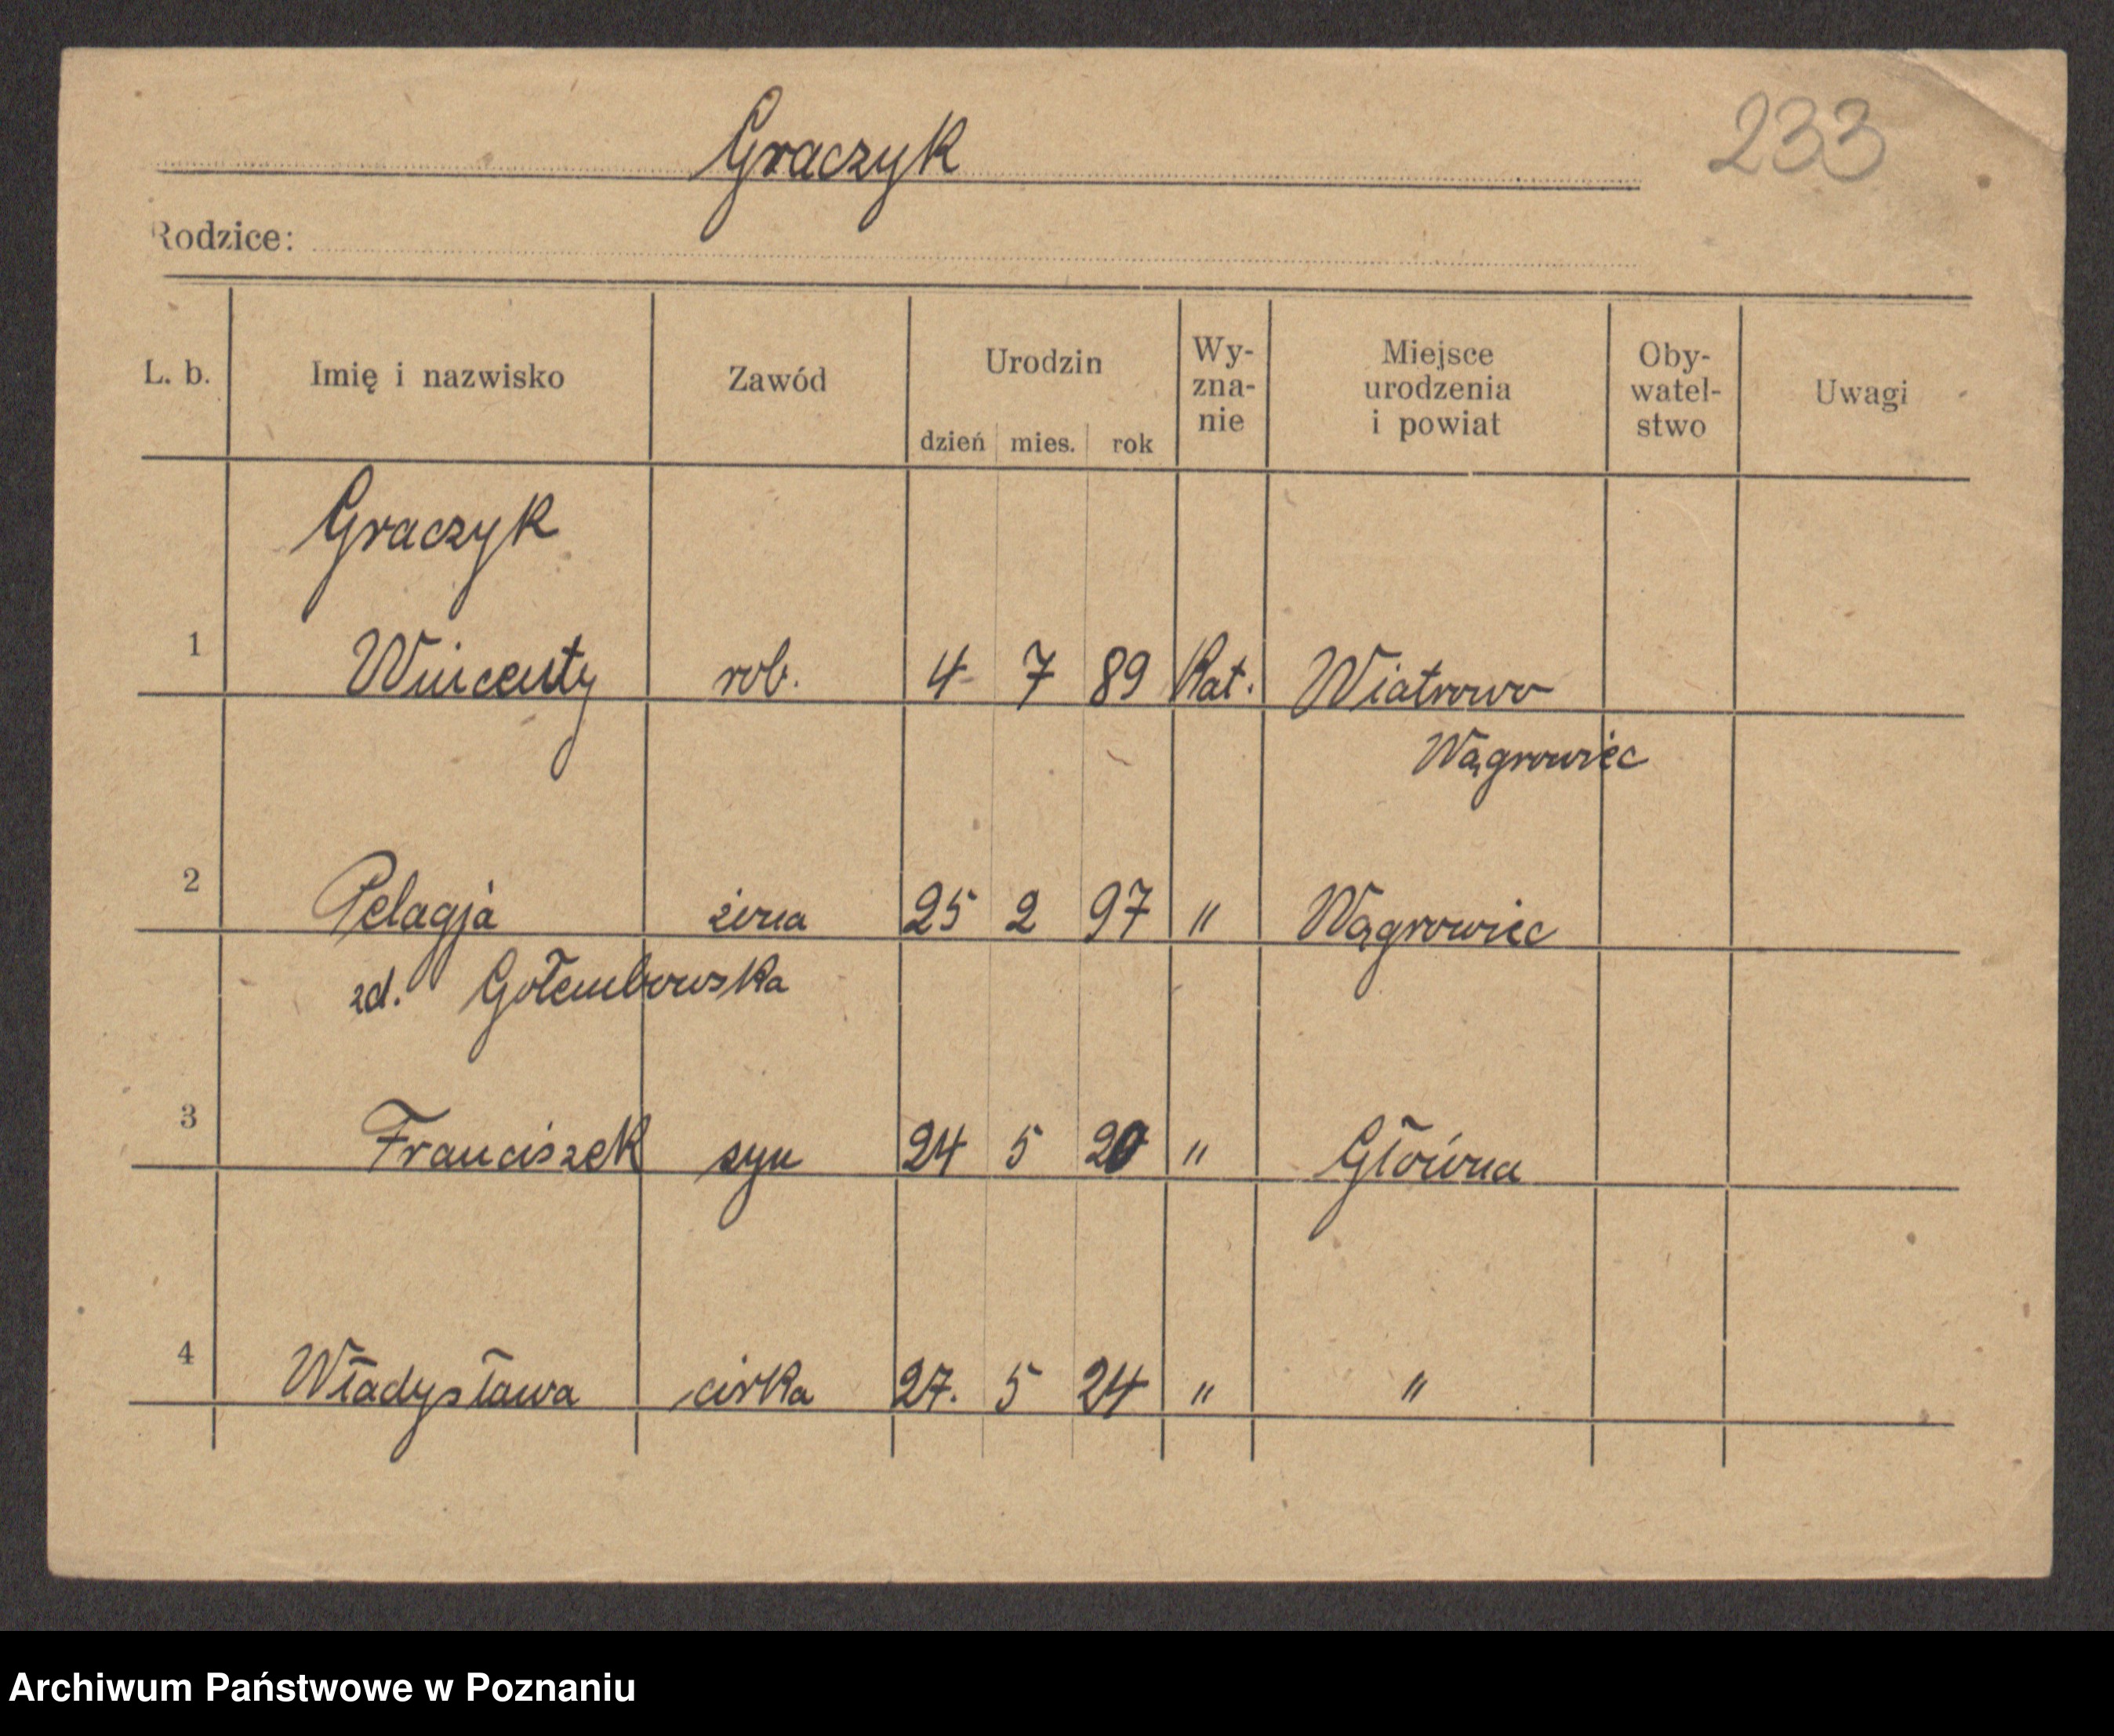 Graczyk
233
Rodzice:
L. b. Imię i nazwisko Zawód Urodzin dzień mies. rok Wy-zna-nie Miejsce urodzenia i powiat Oby-watel-stwo Uwagi
Graczyk
1 Wincenty rob. 4 7 89 Kat. Wiatrowo
Wągrowiec
2 Pelagja żona 25 2 97 " Wągrowiec
zd. Gołembowska
3 Franciszek syn 24 5 20 " Główna
4 Władysława córka 27. 5 24 " "
Archiwum Państwowe w Poznaniu